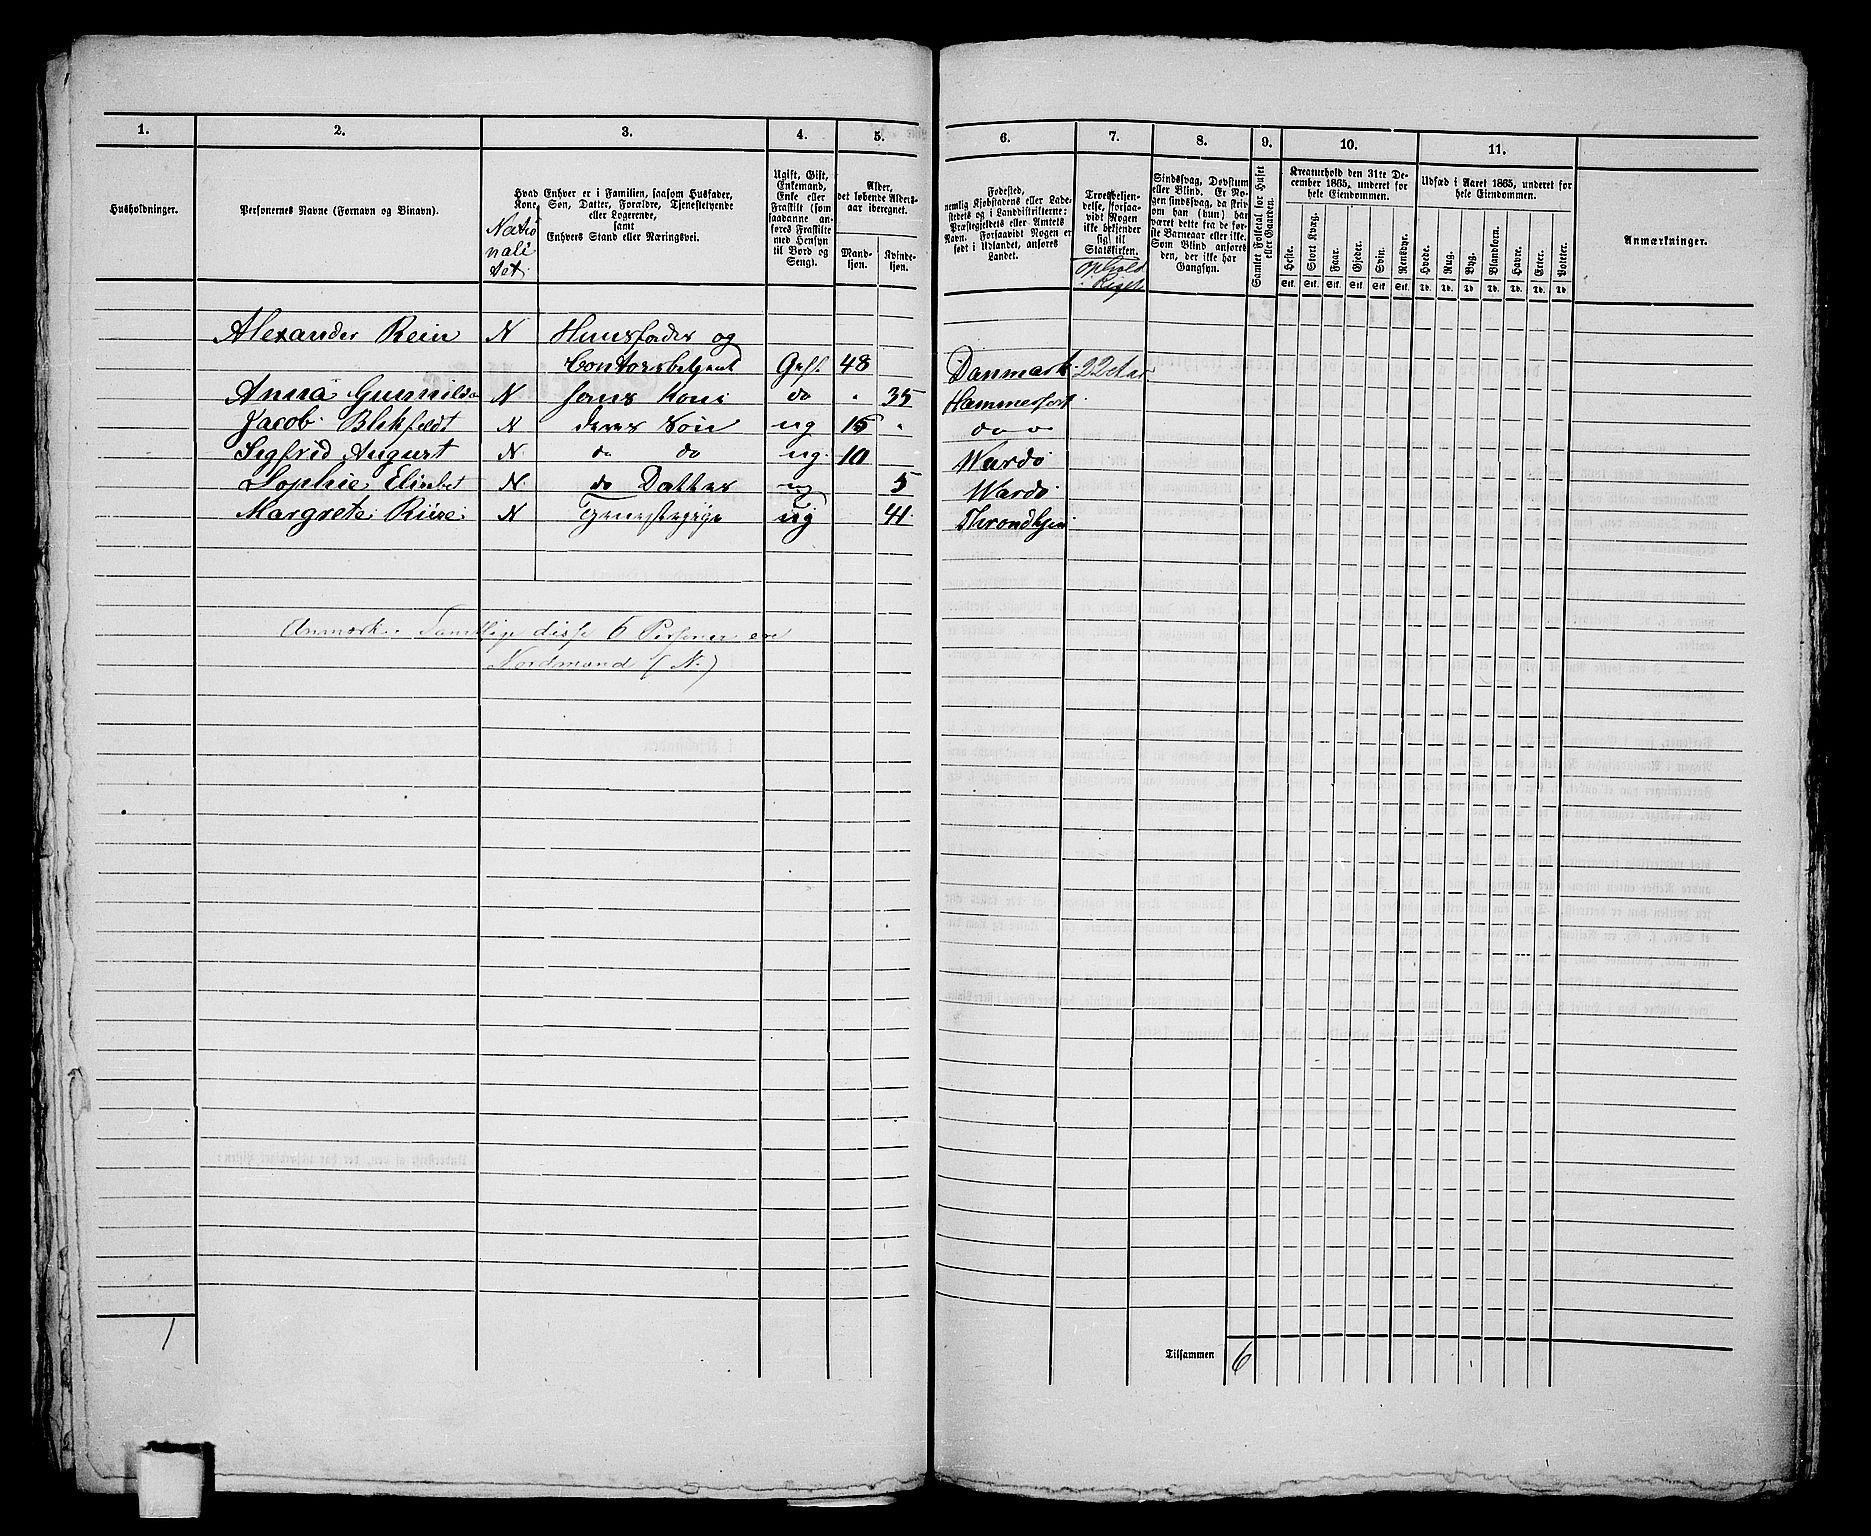 1. 2. 3. 4. 5. 6. 7. 8. 9. 10. 11.
Husholdninger.
Personernes Navne (Fornavn og Binavn).
Natio
nali
tet.
Hvad Enhver er i Familien, saasom Husfader,
Kone, Søn, Datter, Forældre, Tjenestetyende
eller Logerende,
samt
Enhvers Stand eller Næringsvei.
Ugift, Gift,
Enkemand,
Enke eller
Fraskilt (som
saadanne an-
føres Fraskilte
med Hensyn
til Bord og
Seng).
Alder,
det løbende Alders-
aar iberegnet.
Mand-
kjøn.
Kvinde-
kjøn.
Fødested,
nemlig Kjøbstadens eller Lade-
stedets og i Landdistrikterne:
Præstegjeldets eller Amtets
Navn. Forsaavidt Nogen er
født i Udlandet, anføres
Landet.
Troesbekjen-
delse, forsaa-
vidt Nogen
ikke bekjender
sig til
Statskirken.
Ophold
i Riget
Sindssvag, Døvstum
eller Blind. Er No-
gen sindssvag, da skriv
om han (hun) har
været dette fra de før-
ste Barneaar eller ikke.
Som Blind anføres
den, der ikke har
Gangsyn.
Samlet Folketal for Huset
eller Gaarden.
Kreaturhold den 31te De-
cember 1865, underet for
hele Eiendommen.
Heste. Stort Kvæg. Faar. Gjeder. Svin. Rensdyr.
Stk. Stk. Stk. Stk. Stk. Stk.
Udsæd i Aaret 1865, underet for
hele Eiendommen.
Hvede. Rug. Byg. Blandkorn. Havre. Erter. Poteter.
Td. Td. Td. Td. Td. Td. Td.
Anmærkninger.
Alexander Rein N Huusfader og
Contorsbetjent Gift 48 Danmark 22 Aar.
Anna Gunnilda N hans Kone do " 35 Hammerfest
Jacob Blikfeldt N deres Søn ug 15 " do
Sigfrid August N. do do ug. 10 Wardø
Sophie Elisabet N do Datter ug 5 Wardø
Margrete Riise N Tjenestepige ug 41 Throndhjem
Anmærk. Samtlige disse 6 Personer ere
Nordmænd (N.)
1
Tilsammen 6